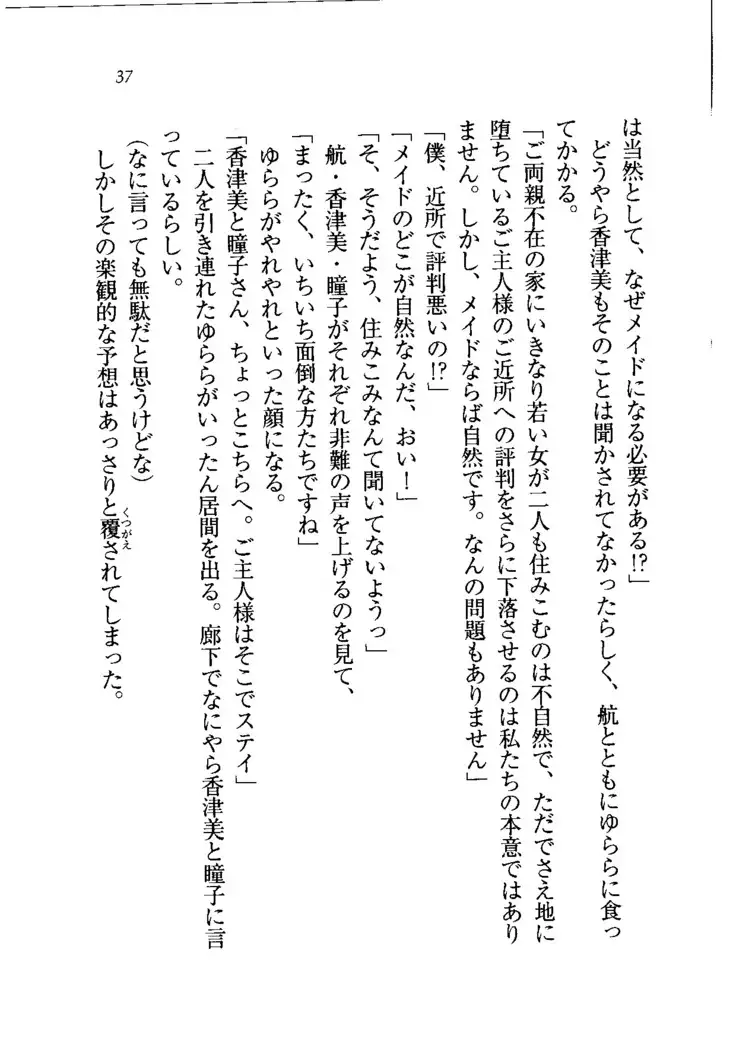 37
は当然として、なぜメイドになる必要がある!?」
どうやら香津美もそのことは聞かされてなかったらしく、航とともにゆららに食っ
てかかる。
「ご両親不在の家にいきなり若い女が二人も住みこむのは不自然で、ただでさえ地に
堕ちているご主人様のご近所への評判をさらに下落させるのは私たちの本意ではあり
ません。しかし、メイドならば自然です。なんの問題もありません」
「僕、近所で評判悪いの!?」
「メイドのどこが自然なんだ、おい！」
「そ、そうだよう、住みこみなんて聞いてないようっ」
航・香津美・瞳子がそれぞれ非難の声を上げるのを見て、
「まったく、いちいち面倒な方たちですね」
ゆららがやれやれといった顔になる。
「香津美と瞳子さん、ちょっとこちらへ。ご主人様はそこでステイ」
二人を引き連れたゆららがいったん居間を出る。廊下でなにやら香津美と瞳子に言
っているらしい。
（なに言っても無駄だと思うけどな）
しかしその楽観的な予想はあっさりと覆くつがえされてしまった。